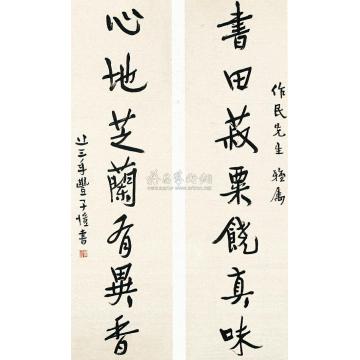 作民先生雅属
書田菽粟饒真味
心地芝蘭有異香
廿三年豐子愷書